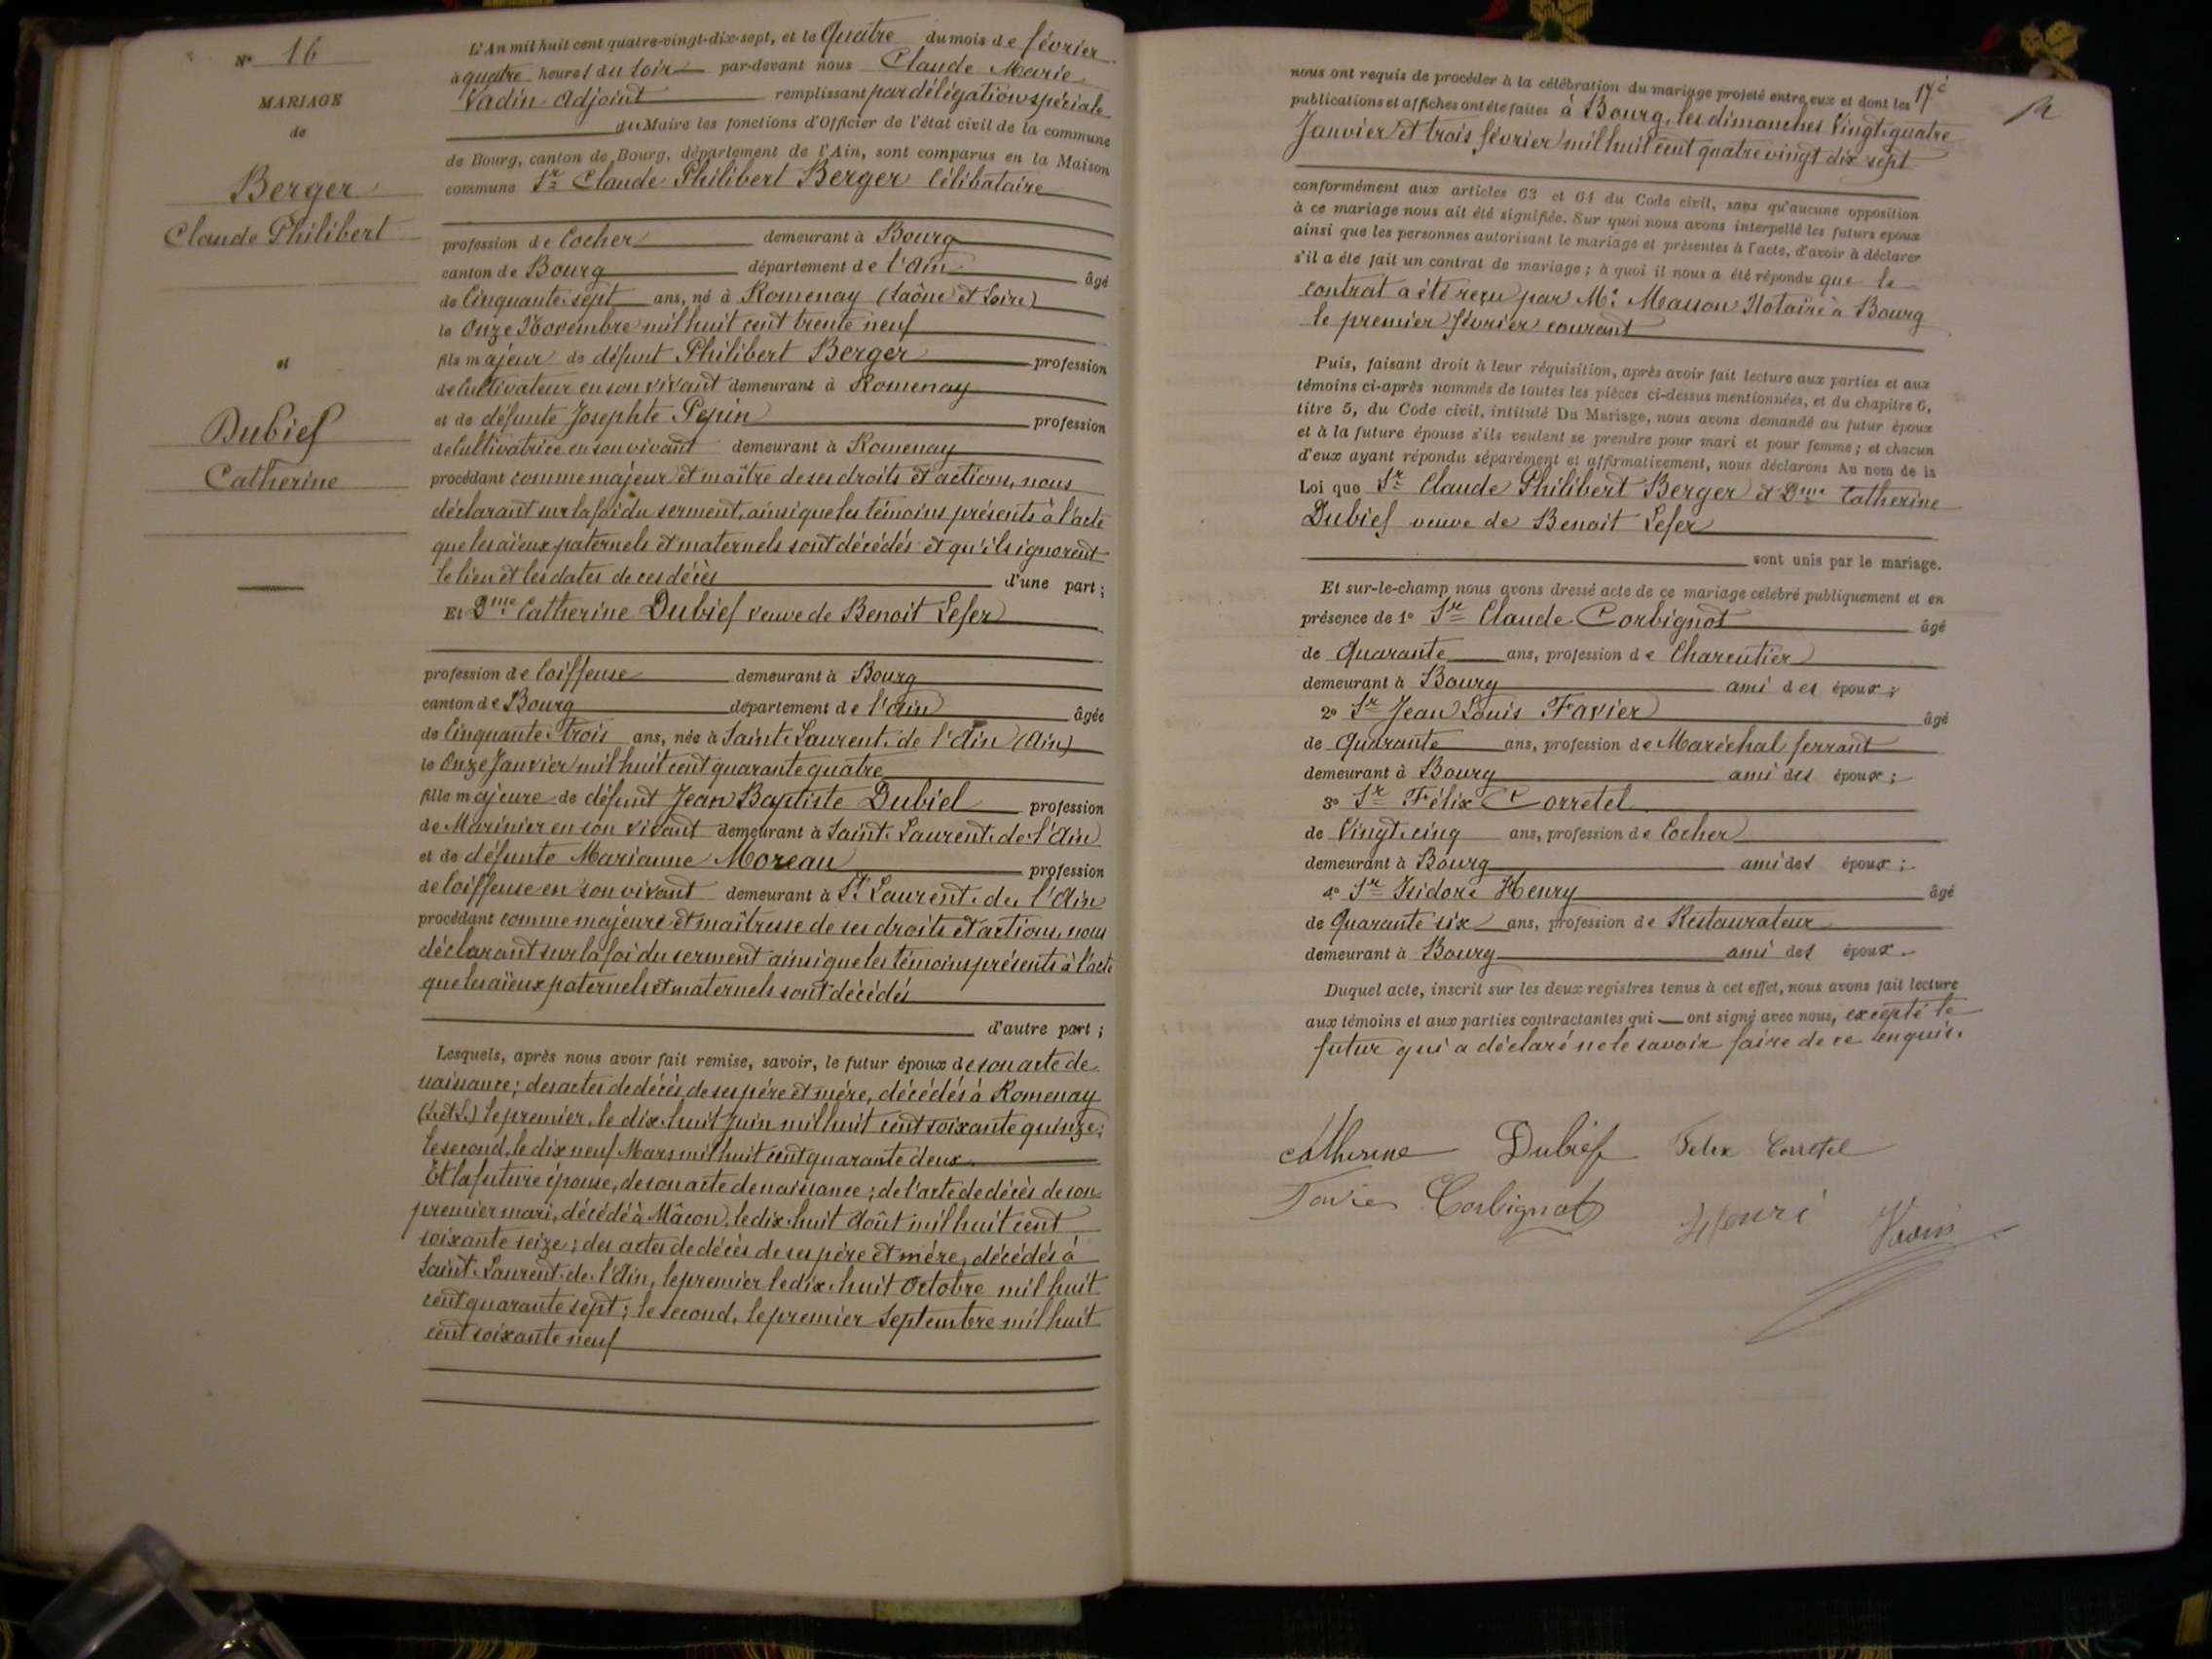 N° 16
MARIAGE
de
Berger
Claude Philibert
et
Dubief
Catherine
L'An mil huit cent quatre-vingt-dix-sept, et le Quatre du mois de février
à quatre heures du soir par-devant nous Claude Marie
Vadin Adjoint remplissant par délégation spéciale
du Maire les fonctions d'Officier de l'état civil de la commune
de Bourg, canton de Bourg, département de l'Ain, sont comparus en la Maison
commune Sr Claude Philibert Berger Célibataire
profession de Cocher demeurant à Bourg
canton de Bourg département de l'Ain âgé
de Cinquante sept ans, né à Romenay (Saône et Loire)
le Onze Novembre mil huit cent trente neuf
fils majeur de défunt Philibert Berger profession
de Cultivateur en son vivant demeurant à Romenay
et de défunte Josephte Pepin profession
de Cultivatrice en son vivant demeurant à Romenay
procédant comme majeur et maître de ses droits et actions, nous
déclarant sur la foi du serment, ainsi que les témoins présents à l'acte
que les aïeux paternels et maternels sont décédés et qu'ils ignorent
le lieu et les dates de ces décès d'une part ;
Et Dme Catherine Dubief veuve de Benoit Lefer
profession de Coiffeuse demeurant à Bourg
canton de Bourg département de l'Ain âgée
de Cinquante trois ans, née à Saint-Laurent-de-l'Ain (Ain)
le Onze Janvier mil huit cent quarante quatre
fille majeure de défunt Jean Baptiste Dubief profession
de Marinier en son vivant demeurant à Saint-Laurent-de-l'Ain
et de défunte Marianne Moreau profession
de Coiffeuse en son vivant demeurant à St Laurent-de-l'Ain
procédant comme majeure et maîtresse de ses droits et actions, nous
déclarant sur la foi du serment ainsi que les témoins présents à l'acte
que les aïeux paternels et maternels sont décédés
d'autre part ;
Lesquels, après nous avoir fait remise, savoir, le futur époux de son acte de
naissance ; des actes de décès de ses père et mère, décédés à Romenay
(S.et L.) le premier, le dix-huit Juin mil huit cent soixante quinze ;
le second, le dix neuf Mars mil huit cent quarante deux
Et la future épouse, de son acte de naissance ; de l'acte de décès de son
premier mari, décédé à Mâcon, le dix-huit Août mil huit cent
soixante seize ; des actes de décès de ses père et mère, décédés à
Saint-Laurent-de-l'Ain, le premier le dix-huit Octobre mil huit
cent quarante sept ; le second, le premier Septembre mil huit
cent soixante neuf
17e
nous ont requis de procéder à la célébration du mariage projeté entre eux et dont les
publications et affiches ont été faites à Bourg, les dimanches Vingt-quatre
Janvier et trois février mil huit cent quatre vingt dix sept
conformément aux articles 63 et 64 du Code civil, sans qu'aucune opposition
à ce mariage nous ait été signifiée. Sur quoi nous avons interpellé les futurs époux
ainsi que les personnes autorisant le mariage et présentes à l'acte, d'avoir à déclarer
s'il a été fait un contrat de mariage ; à quoi il nous a été répondu que le
contrat a été reçu par Me Masson Notaire à Bourg
le premier février courant
Puis, faisant droit à leur réquisition, après avoir fait lecture aux parties et aux
témoins ci-après nommés de toutes les pièces ci-dessus mentionnées, et du chapitre 6,
titre 5, du Code civil, intitulé Du Mariage, nous avons demandé au futur époux
et à la future épouse s'ils veulent se prendre pour mari et pour femme ; et chacun
d'eux ayant répondu séparément et affirmativement, nous déclarons Au nom de la
Loi que Sr Claude Philibert Berger et Dme Catherine
Dubief veuve de Benoit Lefer
sont unis par le mariage.
Et sur-le-champ nous avons dressé acte de ce mariage célébré publiquement et en
présence de 1° Sr Claude Corbignot âgé
de Quarante ans, profession de Charcutier
demeurant à Bourg ami des époux ;
2° Sr Jean Louis Favier âgé
de Quarante ans, profession de Maréchal ferrant
demeurant à Bourg ami des époux ;
3° Sr Félix Corretel
de Vingt-cinq ans, profession de Cocher
demeurant à Bourg ami des époux ;
4° Sr Isidore Henry âgé
de Quarante six ans, profession de Restaurateur
demeurant à Bourg ami des époux.
Duquel acte, inscrit sur les deux registres tenus à cet effet, nous avons fait lecture
aux témoins et aux parties contractantes qui ont signé avec nous, excepté le
futur qui a déclaré ne le savoir faire de ce enquis.
Catherine Dubief Felix Corretel
Favier Corbignot Henri Vadin